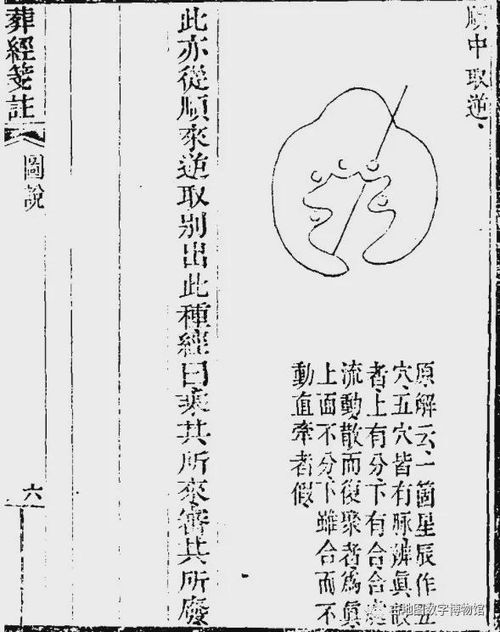 順中取逆、
原解云、一箇星辰作五
穴、五穴皆有脉辨眞假
者、上有分下有合合處
流動散而復聚者爲眞
上面不分下雖合而不
動直牽者假、
此亦從順來逆取别出此種經曰乘其所來審其所廢
葬經箋註
圖說
六
地图数字博物馆